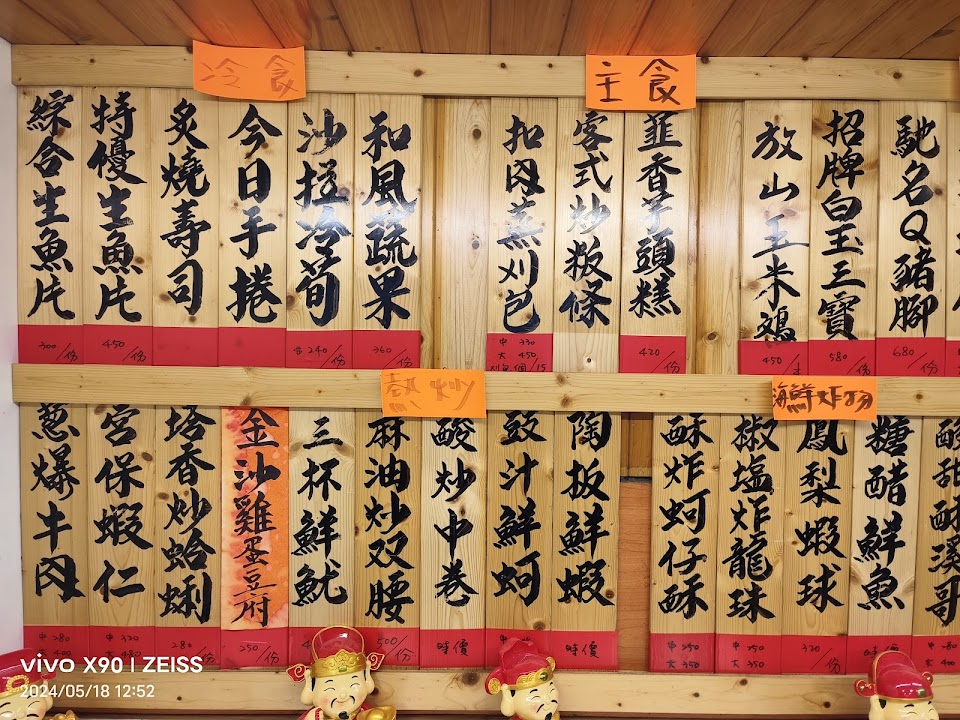 冷食
主食
綜合生魚片
300/份
特優生魚片
450/份
炙燒壽司
/份
今日手捲
/份
沙拉冷筍
中240/份
和風蔬果
360/份
扣肉蒸刈包
中 330
大 450
刈包 個/15
客式炒粄條
韮香芋頭糕
420/份
放山玉米鷄
450/
招牌白玉三寶
580/份
馳名Q豬腳
680/份
熱炒
海鮮炸物
蔥爆牛肉
中280
大400
宮保蝦仁
中320
大480
塔香炒蛤蜊
280/份
金沙雞蛋豆腐
250/份
三杯鮮魷
麻油炒双腰
500/份
酸炒中卷
時價
豉汁鮮蚵
陶板鮮蝦
時價
酥炸蚵仔酥
中250
大350
椒塩炸龍珠
中250
大350
鳳梨蝦球
320/份
糖醋鮮魚
酸甜酥溪哥
中280
大400
vivo X90 | ZEISS
2024/05/18 12:52